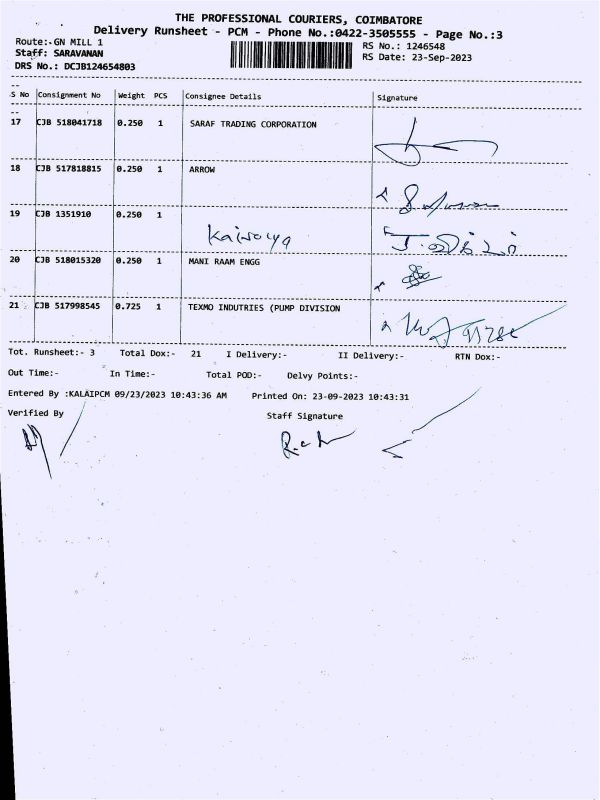 THE PROFESSIONAL COURIERS, COIMBATORE
Delivery Runsheet - PCM - Phone No.:0422-3505555 - Page No.:3
Route:-GN MILL 1 RS No.: 1246548
Staff: SARAVANAN RS Date: 23-Sep-2023
DRS No.: DCJB124654803
S No Consignment No Weight PCS Consignee Details Signature
17 CJB 518041718 0.250 1 SARAF TRADING CORPORATION
18 CJB 517818815 0.250 1 ARROW
19 CJB 1351910 0.250 1
20 CJB 518015320 0.250 1 MANI RAAM ENGG
21 CJB 517998545 0.725 1 TEXMO INDUTRIES (PUMP DIVISION
Tot. Runsheet:- 3 Total Dox:- 21 I Delivery:- II Delivery:- RTN Dox:-
Out Time:- In Time:- Total POD:- Delvy Points:-
Entered By :KALAIPCM 09/23/2023 10:43:36 AM Printed On: 23-09-2023 10:43:31
Verified By Staff Signature